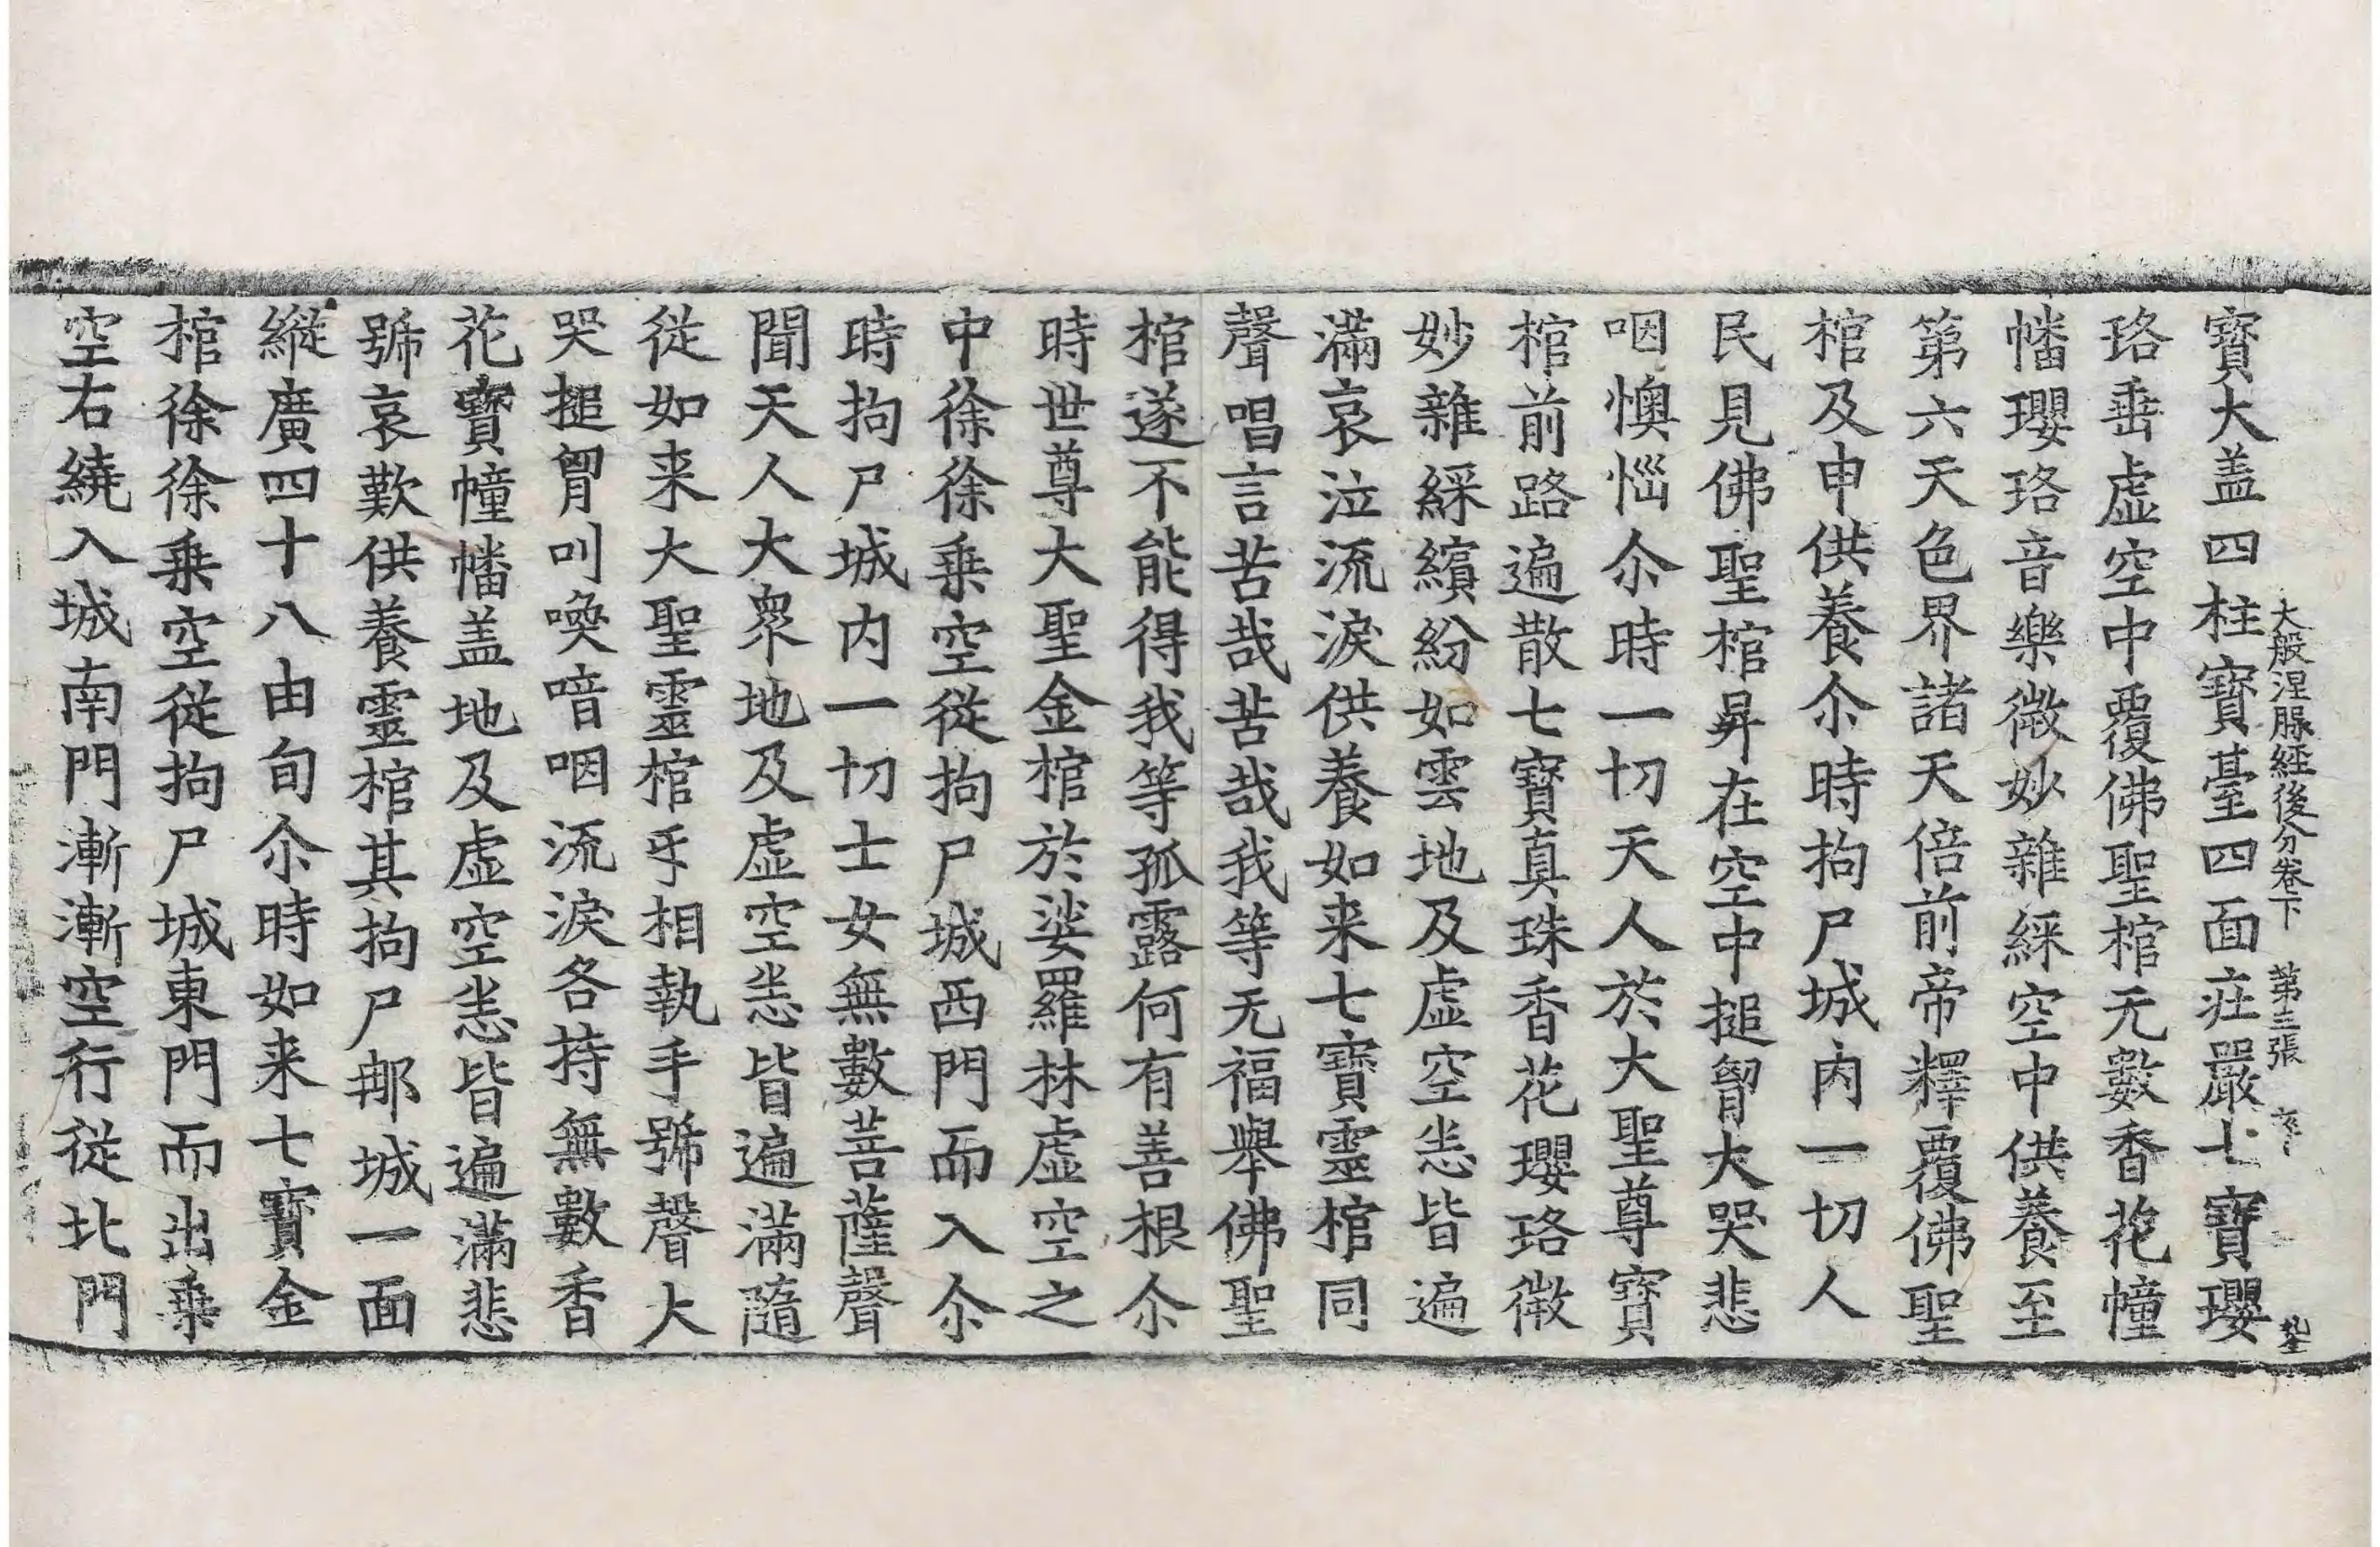 大般涅脲経後分卷下 第三張
寳大盖四柱寳䑓四面庄嚴七寳瓔
珞垂虚空中覆佛聖棺无數香花幢
幡瓔珞音樂微妙雜綵空中供養至
第六天色界諸天倍前帝釋覆佛聖
棺及申供養尒時拘尸城內一切人
民見佛聖棺昇在空中搥胷大哭悲
咽懊惱尒時一切天人於大聖尊寳
棺前路遍散七寳真珠香花瓔珞微
妙雜綵繽紛如雲地及虚空悉皆遍
滿哀泣流淚供養如来七寳靈棺同
聲唱言苦哉苦哉我等无福舉佛聖
棺遂不能得我等孤露何有善根尒
時世尊大聖金棺於娑羅林虚空之
中徐徐乗空従拘尸城西門而入尒
時拘尸城内一切士女無數菩薩聲
聞天人大衆地及虚空悉皆遍滿隨
従如来大聖靈棺㸦相執手號聲大
哭搥胷叫喚喑咽流淚各持無數香
花寳幢幡盖地及虚空悉皆遍滿悲
號哀歎供養靈棺其拘尸那城一面
縱廣四十八由旬尒時如来七寳金
棺徐徐乗空従拘尸城東門而出乗
空右繞入城南門漸漸空行従北門